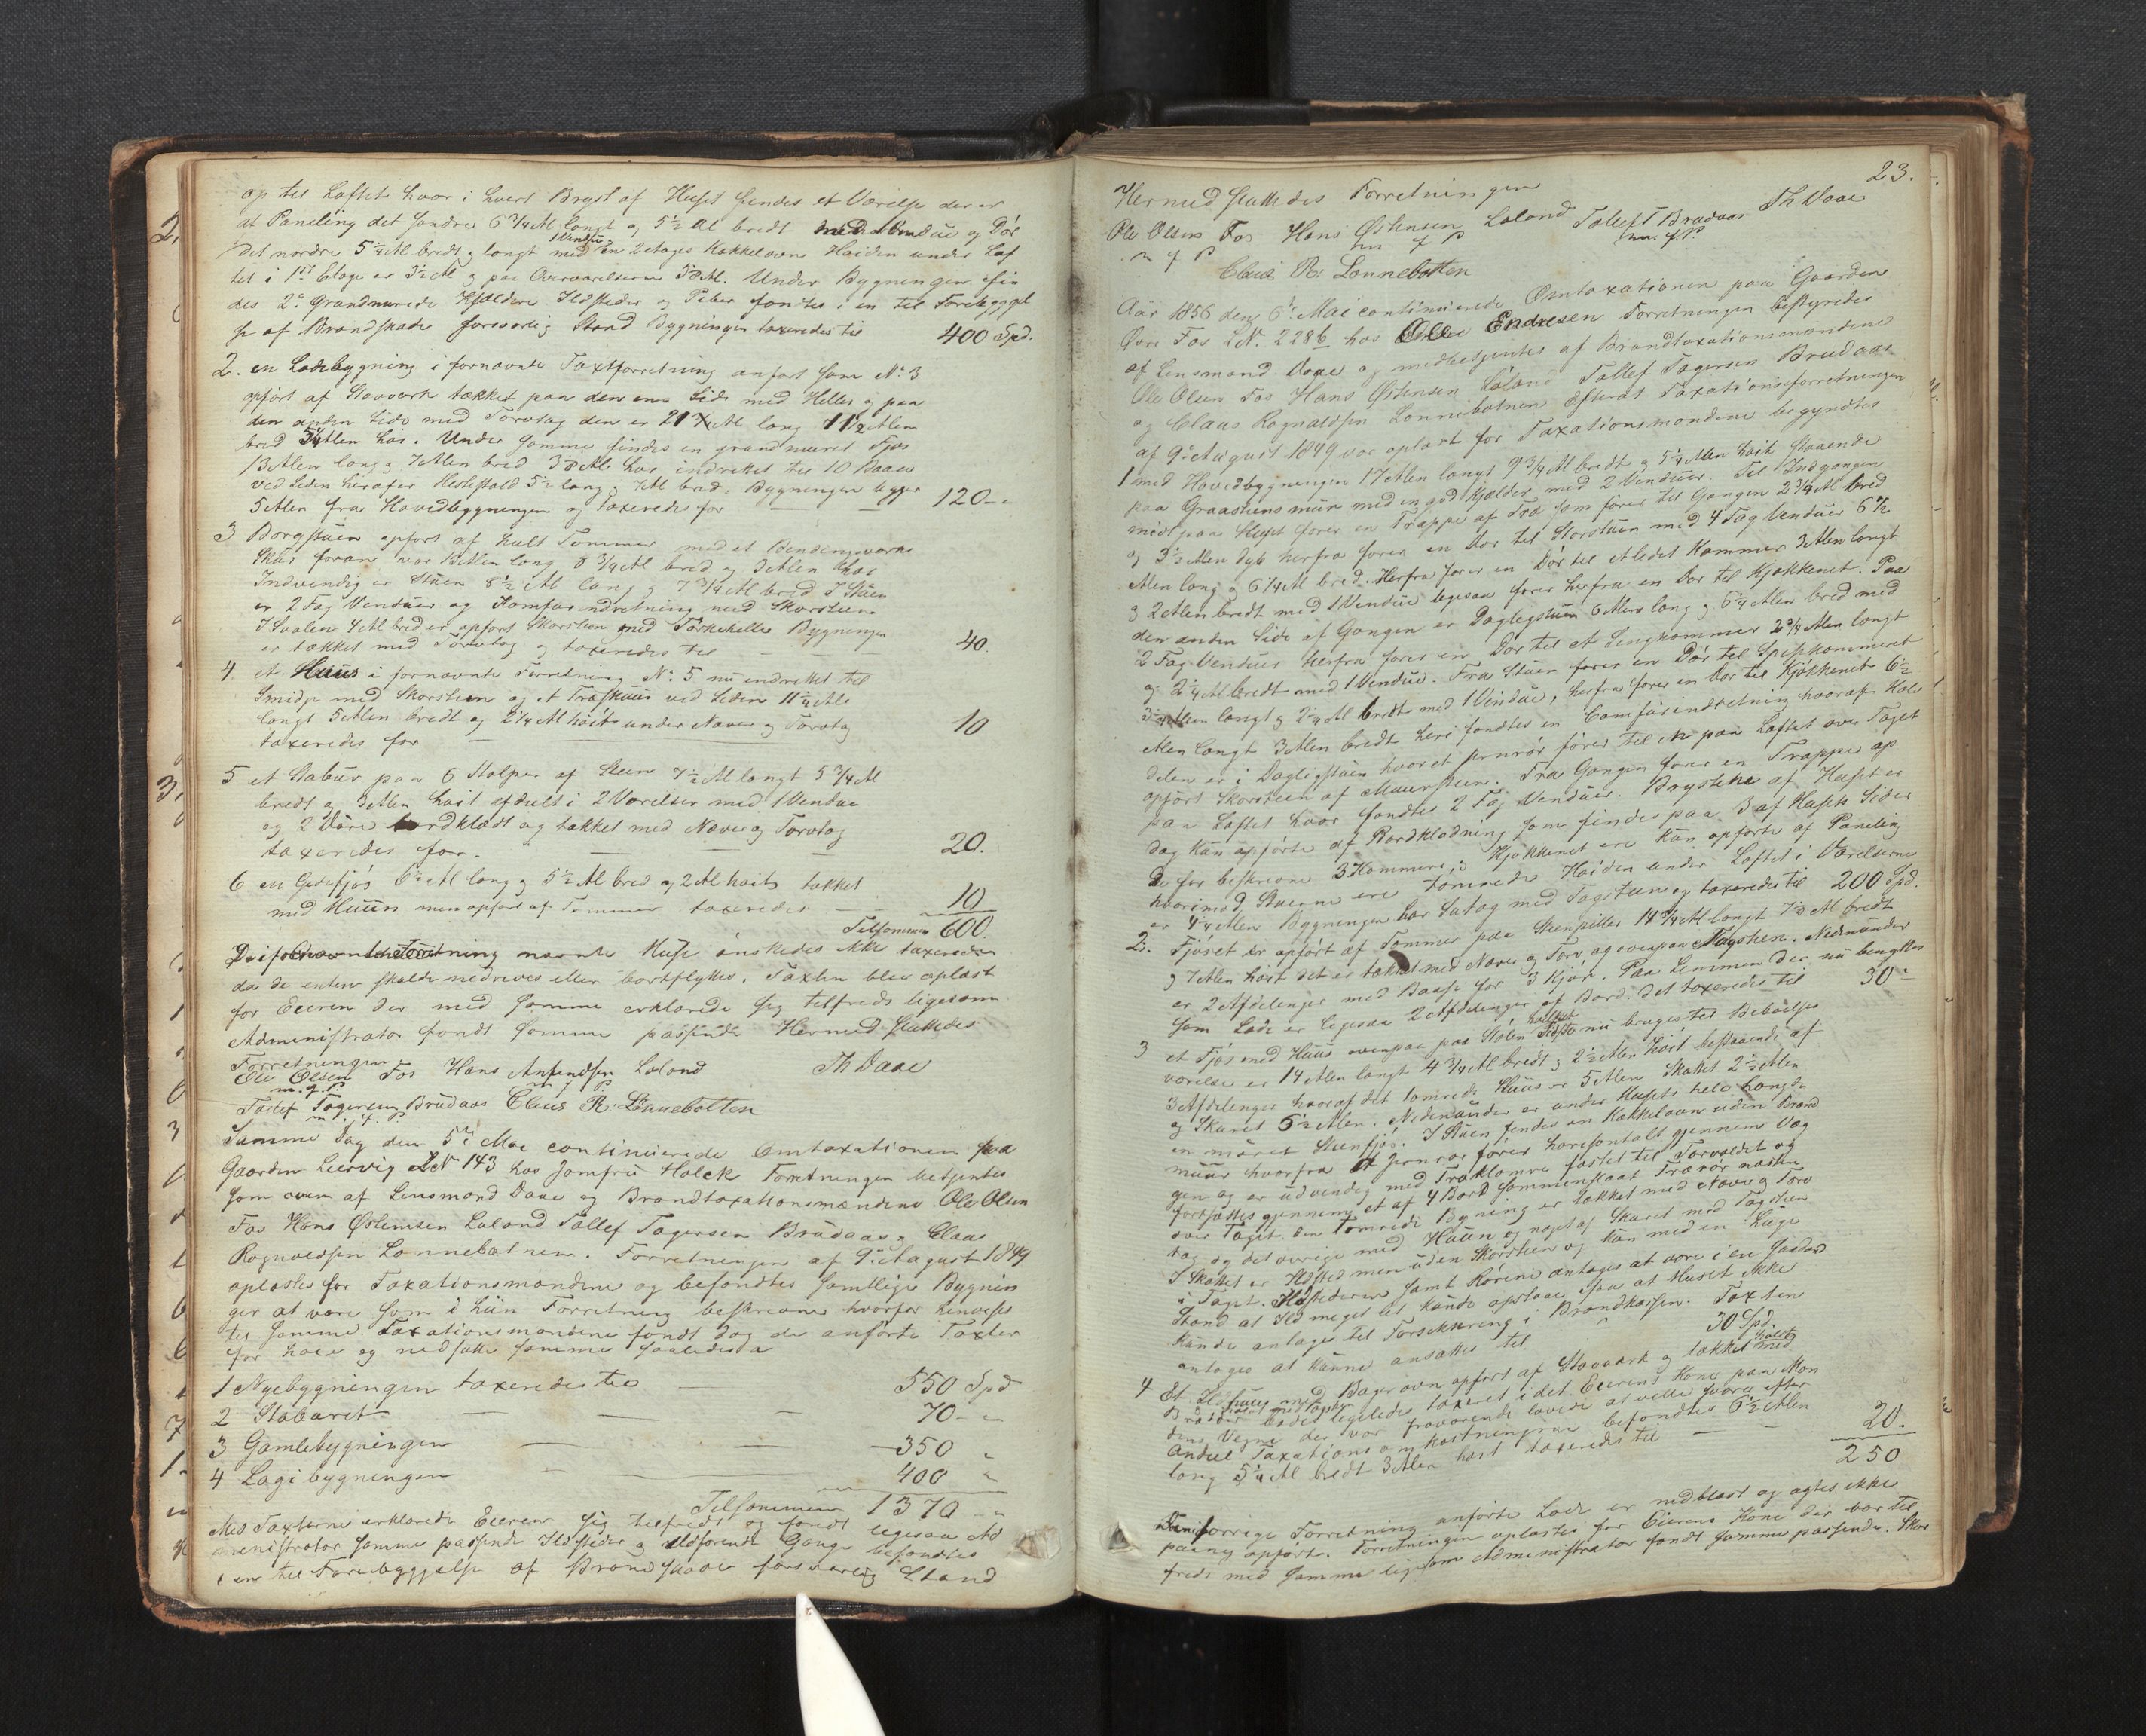 op til Loftet hvor i hvert Bryst af Huset findes et Værelse der er
at Paneling det søndre 6 3/4 Al langt og 5 1/2 Al bredt med Vindue og Dør
det nordre 5 1/4 Al bredt og langt med 1 Vindue en 2 etages Kakkelovn Høiden under Lof
tet i 1ste Etage er 3 1/2 Al og paa Overværelserne Al. Under Bygningen fin
des 2de Grundmurede Kjældere Ildsteder og Piber fandtes i en til Forebyggel
se af Brandskade forsvarlig Stand Bygningen taxeredes til 400 Spd.
2. en Ladebygning i fornævnte Taxtforretning anført som No. 3
opført af Stavværk tækket paa den ene Side med Heller og paa
den anden Side med Torvtag den er 21 Al lang 11 1/2 Alen
bred 5 1/4 Alen høi. Under samme findes en grundmuret Fjøs
13 Alen lang og 7 Alen bred Al høi indrettet til 10 Baase
ved Siden heraf er Hestestald 5 1/2 lang og 7 Al bred. Bygningen ligger
5 Alen fra Hovedbygningen og taxeredes for 120 -
3 Borgstuen opført af hult Tømmer med et Bindingsværks
Skur foran var Alen lang 8 3/4 Al bred og 3 Alen høi
Indvendig er Stuen 8 1/2 Al lang og 7 3/4 Al bred I Stuen
er 2 Fag Vinduer og Komfur indretning med Skorsteen
I Svalen 4 Al bred er opført Skorsteen med Tørkehelle Bygningen
er tækket med Torvtag og taxeredes til 40.
4 et Huus i fornævnte Forretning No. 5 nu indrettet til
Smidje med Skorsteen og et Træskuur ved Siden 11 1/4 Al
langt 5 Alen bredt og 2 1/4 Al høit under Næver og Torvtag
taxeredes for 10
5 et Stabur paa 6 Stolper af Steen 7 1/2 Al langt 5 3/4 Al
bredt og 3 Alen høit afdeelt i 2 Værelser med 1 Vindue
og 2 Døre bordklædt og takket med Næver og Torvtag
taxeredes for. 20.
6 en Gedefjøs 6 1/2 Al lang og 5 1/2 Al bred og 2 Al høit takket
med Huun men opført af Tømmer taxeredes 10
Tilsammen 600.
De i Forretning nævnte Huse ønskedes ikke taxerede
da de enten skulde nedrives eller bortflyttes. Taxten blev oplæst
for Eieren der med samme erklærede sig tilfreds ligesom
Administrator fandt samme passende Hermed sluttedes
Forretningen
Ole Olsen Fos Hans Loland Th Daae
m. f. P. m f P
Tollef Tøgersen Brudaas Claus R. Lønnebotten
m. f. P.
Samme Dag den 5te Mai continuerede Omtaxationen paa
Gaarden Leervig LN 143 hos Jomfru Holck Forretningen betjentes
som oven af Lensmand Daae og Brandtaxationsmændene Ole Olsen
Fos Hans Østensen Loland Tollef Tøgersen Brudaas og Claus
Rognaldsen Lønnebotnen. Forretningen af 9de August 1849
oplæstes for Taxationsmændene og befandtes samtlige Bygnin
ger at være som i hiin Forretning beskrevne hvorfor henvises
til samme Taxationsmændene fandt dog de anførte Taxter
for høie og nedsatte samme saaledes
1 Nyebygningen taxeredes til 550 Spd
2 Staburet 70 -
3 Gamlebygningen 350 "
4 Løgebygningen 400 "
Tilsammen 1370 -
Med Taxterne erklærede Eieren sig tilfreds og fandt ligesaa Ad
ministrator samme passende Ildsteder og Ildførende Gange befandtes
i en til Forebyggelse af Brandskade forsvarlig Stand
23.
Hermed sluttedes Forretningen
Ole Olsen Fos Hans Østensen Loland Tollef Brudaas Th Daae
m f P m f P m. f. P.
Claus R. Lønnebotten
Aar 1856 den 6te Mai continuerede Omtaxationen paa Gaarden
Øvre Fos LN. 228b hos Ole Endresen Forretningen bestyredes
af Lensmand Daae og medbetjentes af Brandtaxationsmændene
Ole Olsen Fos Hans Østensen Loland Tollef Tøgersen Brudaas
og Claus Rognaldsen Lønnebotnen Efterat Taxationsforretningen
af 9de August 1849 var oplæst for Taxationsmændene begyndtes
1 med Hovedbygningen 17 Alen langt 9 3/4 Al bredt og 5 1/4 Alen høit staaende
paa Graasteensmuur med en god Kjelder med 2 Vinduer. Til Indgangen
midt paa Huset fører en Trappe af Træ som fører til Gangen 2 3/4 Al bred
og 3 1/2 Alen dyb herfra fører en Dør til Storstuen med 4 Fag Vinduer 6 1/2
Alen lang og 6 1/4 Al bred. Herfra fører en Dør til et lidet Kammer 3 Alen langt
og 2 Alen bredt med 1 Vindue ligesaa fører herfra en Dør til Kjøkkenet. Paa
den anden Side af Gangen er Dagligstuen 6 Alen lang og 6 1/4 Alen bred med
2 Fag Vinduer herfra fører en Dør til et Sengkammer 2 3/4 Alen langt
og 2 1/4 Al bredt med 1 Vindue. Fra Stuen fører en Dør til Spisekammeret
Alen langt og 2 1/4 Al bredt med 1 Vindue, herfra fører en Dør til Kjøkkenet 6 1/2
Alen langt 3 Alen bredt heri fandtes en Comfurindretning hvoraf Hole
delen er i Dagligstuen hvor et Jernrør fører til en paa Loftet over Taget
opført Skorsteen af Muursteen. Fra Gangen fører en Trappe op
paa Loftet hvor fandtes 2 Fag Vinduer. Brystene af Huset er
dog kun opførte af Bordklædning som findes paa 3 af Husets Sider
De før beskrevne 3 Kammere og Kjøkkenet ere kun opførte af Paneling
hvorimod Stuerne ere tømrede Høiden under Loftet i Værelserne
er 4 1/4 Alen Bygningen har Sutag med Tagsteen og taxeredes til 200 Spd.
2. Fjøset er opført af Tømmer paa Steenpiller 14 3/4 Al langt 7 1/2 Al bredt
og 7 Alen høit det er takket med Næver og Torv, og ovenpaa Tagsteen. Nedenunder
er 2 Afdelinger med Baase for 3 Kjør. Paa Lemmen der nu benyttes
som Lade er ligesaa 2 Afdelinger af Bord. det taxeredes til 30 -
3 et Fjøs med Huus ovenpaa paa Stølen hvilket Sidste nu bruges til Beboelses
værelse er 14 Alen langt 4 3/4 Al bredt og 2 1/2 Alen høit bestaaende af
3 Afdelinger hvoraf det tømrede Huus er 5 Alen Skottet 2 1/2 Alen
og Skuret 6 1/2 Alen. Nedenunder er under Husets hele Længde
en muret Steenfjøs. I Stuen findes en Kakkelovn uden Brand
muur hvorfra et Jernrør fører horisontalt gjennem Væg
gen og er udvendig med Træklamre fastet til Torvoldet og
fortsættes gjennem et af 4 Bord sammenslaat Trærør næsten
over Taget. Den tømrede Bygning er takket med Næver og Torv
tag og det øvrige med Huun og noget af Skuret med Tagsteen
I Skottet er Ildsted men uden Skorsteen og kun med en Luge
i Taget. Ildstederne samt Rørene antages at være i en saadan
Stand at Ild meget let kunde opstaae saa at Huset ikke
kunde antages til Forsikkring i Brandkassen. Taxten
antages at kunne ansættes til 30 Spd.
4 Et Ildhuus med Bagerovn opført af Stavværk og takket med
blev ligeledes taxeret i det Eierens Kone paa Man
dens Vegne der var fraværende lovede at ville svare efter
Andeel Taxationsomkostningerne befandtes 6 1/2 Alen
lang 5 1/4 Al bredt 3 Alen høit taxeredes til 20.
250
Den i forrige Forretning anførte Lade er nedblæst og agtes ikke
paany opført. Forretningen oplæstes for Eierens Kone der var til
freds med samme ligesom Administrator fandt samme passende. Skor